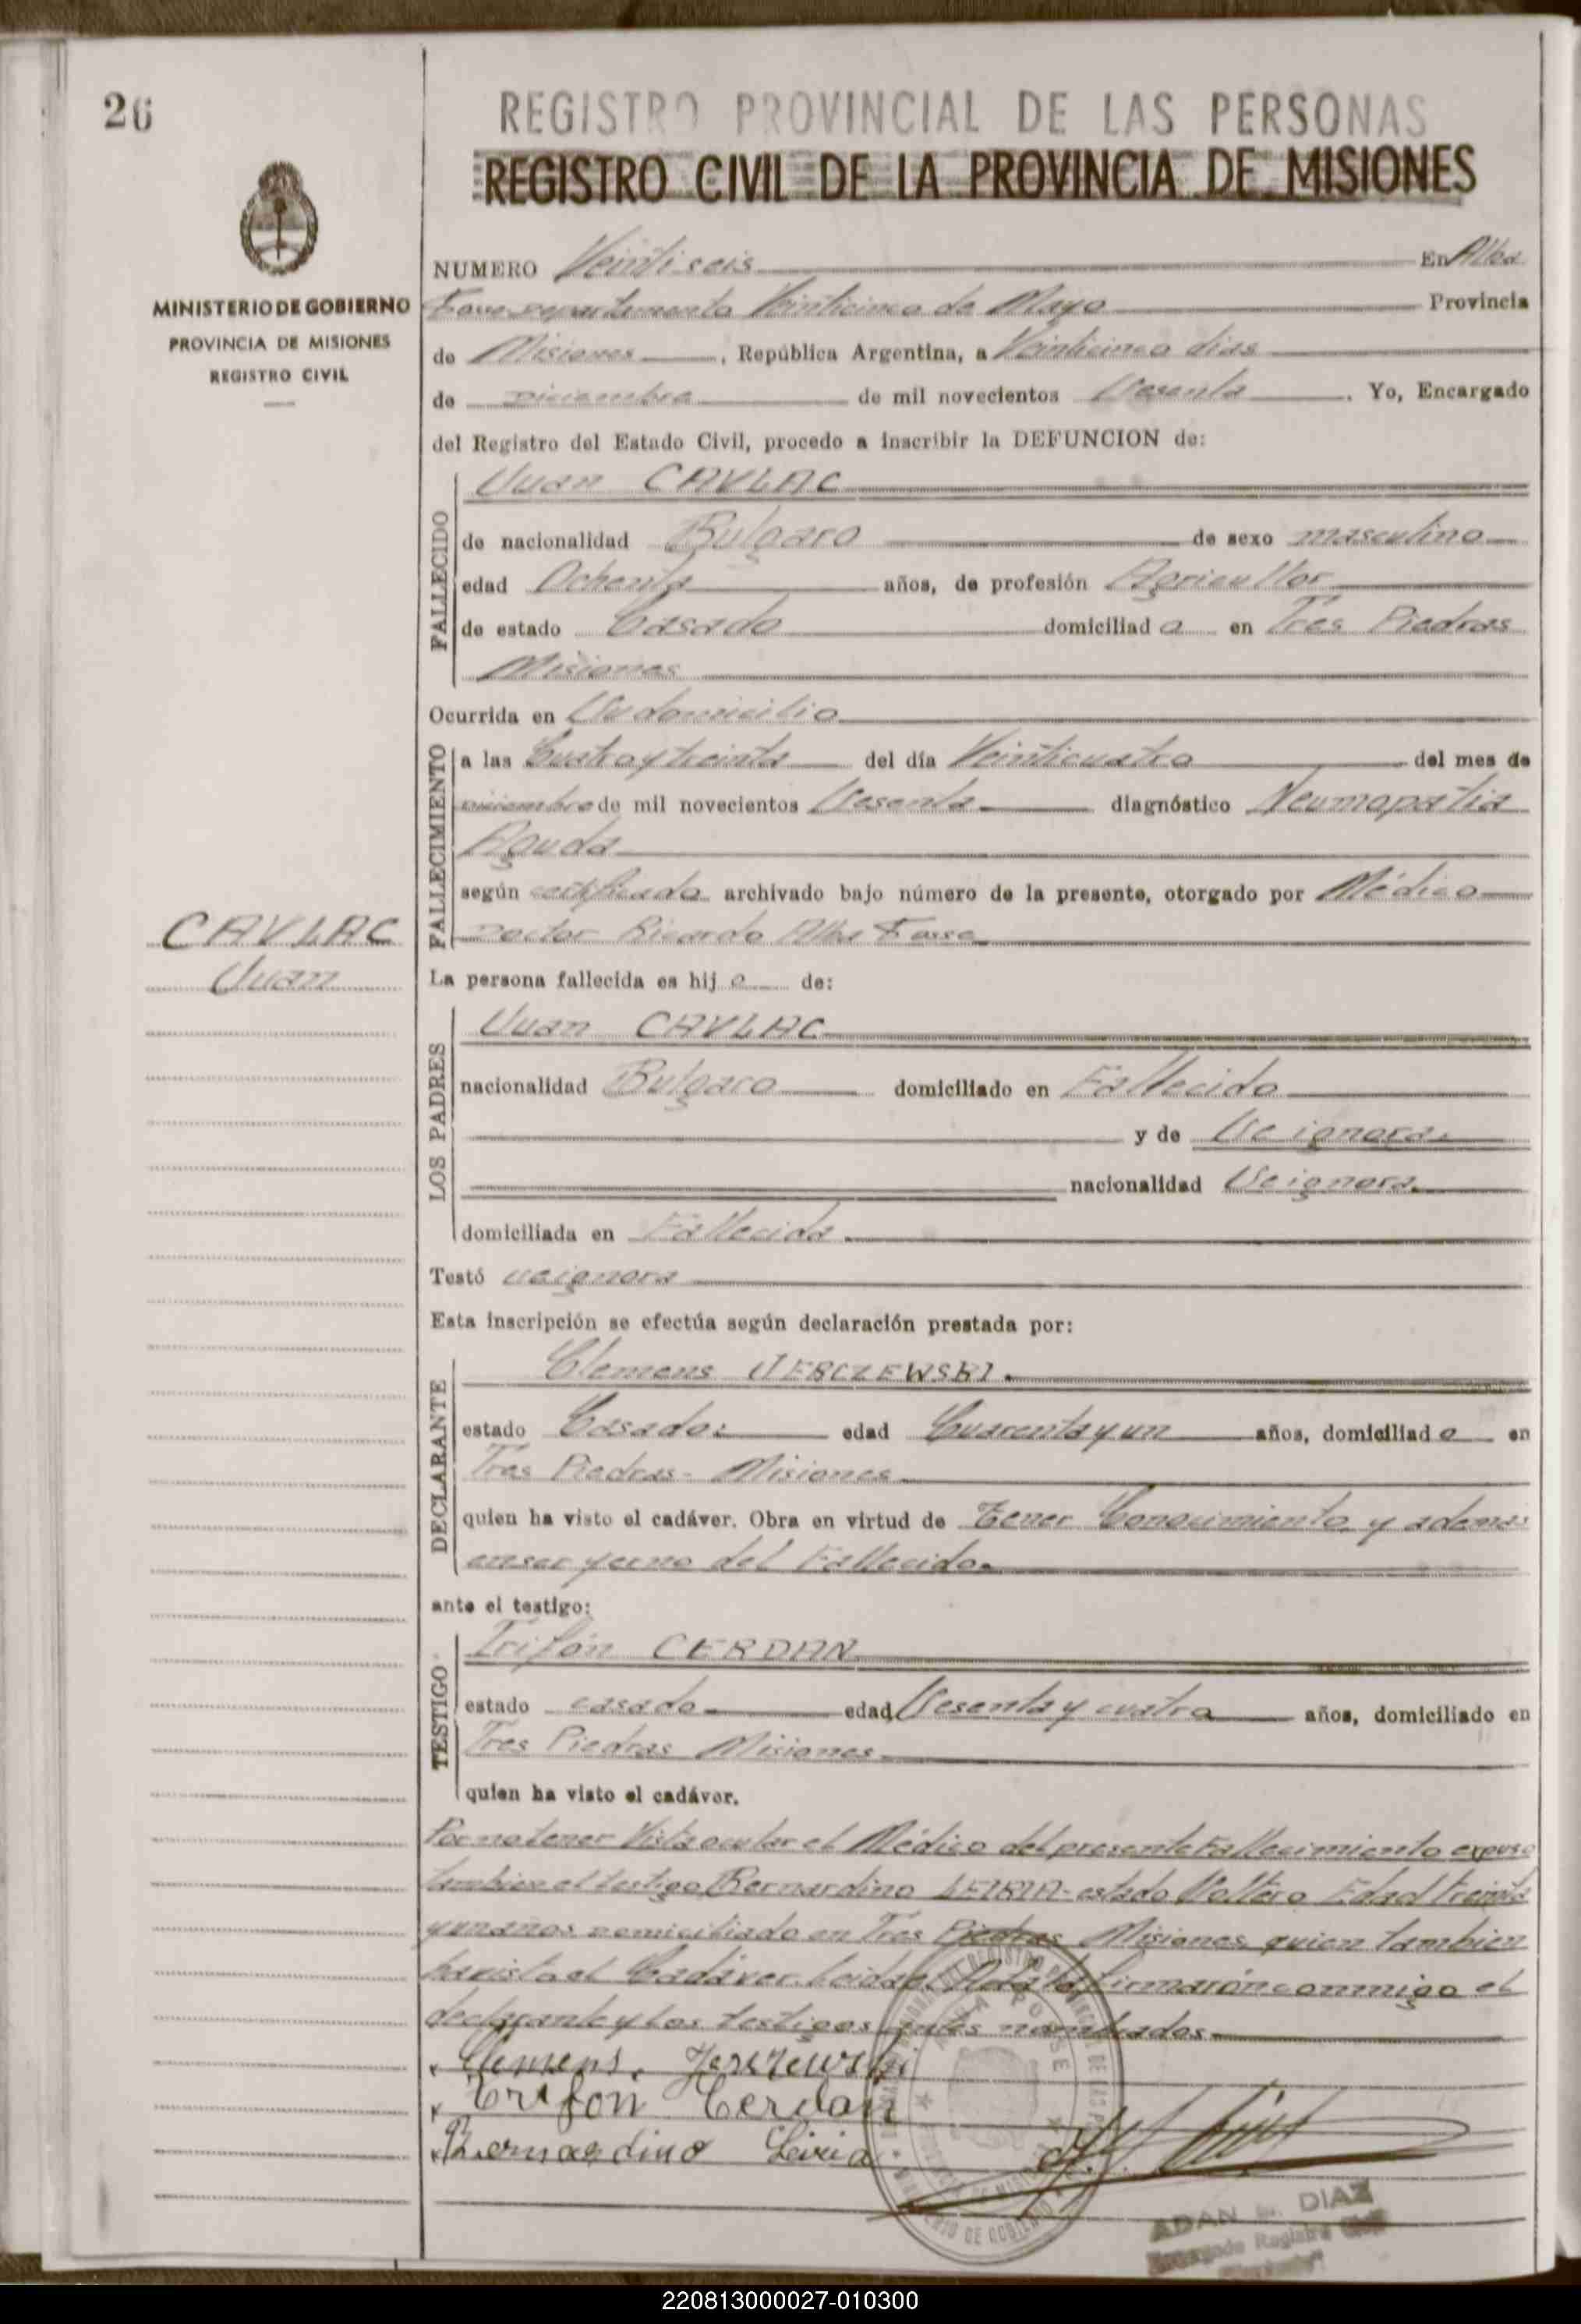 26
REGISTRO PROVINCIAL DE LAS PERSONAS
REGISTRO CIVIL DE LA PROVINCIA DE MISIONES
MINISTERIO DE GOBIERNO
PROVINCIA DE MISIONES
REGISTRO CIVIL
NUMERO Veintiseis En Alba
departamento Veinticinco de Mayo Provincia
de Misiones, República Argentina, a Veinticinco dias
de Diciembre de mil novecientos Sesenta. Yo, Encargado
del Registro del Estado Civil, procedo a inscribir la DEFUNCION de:
FALLECIDO
Juan CAVLAC
de nacionalidad Bulgaro de sexo masculino
edad Ochenta años, de profesión Agricultor
de estado Casado domiciliad o en Tres Piedras
Misiones
Ocurrida en Su domicilio
FALLECIMIENTO
a las Cuatro y treinta del día Veinticuatro del mes de
Diciembre de mil novecientos Sesenta diagnóstico Neumopatia
Aguda
según certificado archivado bajo número de la presente, otorgado por Médico
Doctor Ricardo Alba
CAVLAC
Juan
La persona fallecida es hij o de:
LOS PADRES
Juan CAVLAC
nacionalidad Bulgaro domiciliado en Fallecido
y de Se ignora.
nacionalidad Se ignora.
domiciliada en Fallecida.
Testó se ignora
Esta inscripción se efectúa según declaración prestada por:
DECLARANTE
Clemens JERCZEWSKI.
estado Casado: edad Cuarenta y un años, domiciliad o en
Tres Piedras - Misiones
quien ha visto el cadáver. Obra en virtud de Tener Conocimiento y además
en ser yerno del Fallecido.
ante el testigo:
TESTIGO
Trifón CERDAN
estado casado edad Sesenta y cuatro años, domiciliado en
Tres Piedras Misiones
quien ha visto el cadáver.
Por no tener Vista ocular el Médico del presente Fallecimiento expuso
tambien el testigo Bernardino LEIRIA - estado Soltero Edad treinta
y un años Domiciliado en Tres Piedras Misiones quien tambien
ha visto el Cadáver. Leida el Acta la firmarón conmigo el
declarante y los testigos antes nombrados.
Clemens. Jerczewski
Trifon Cerdan
Bernardino Leiria
ADAN DIAZ
Encargado Registro Civil
220813000027-010300